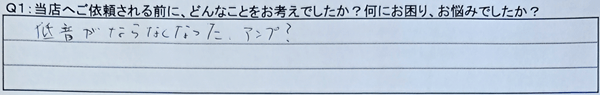 Q1:当店へご依頼される前に、どんなことをお考えでしたか？何にお困り、お悩みでしたか？
低音がならなくなった、アンプ？